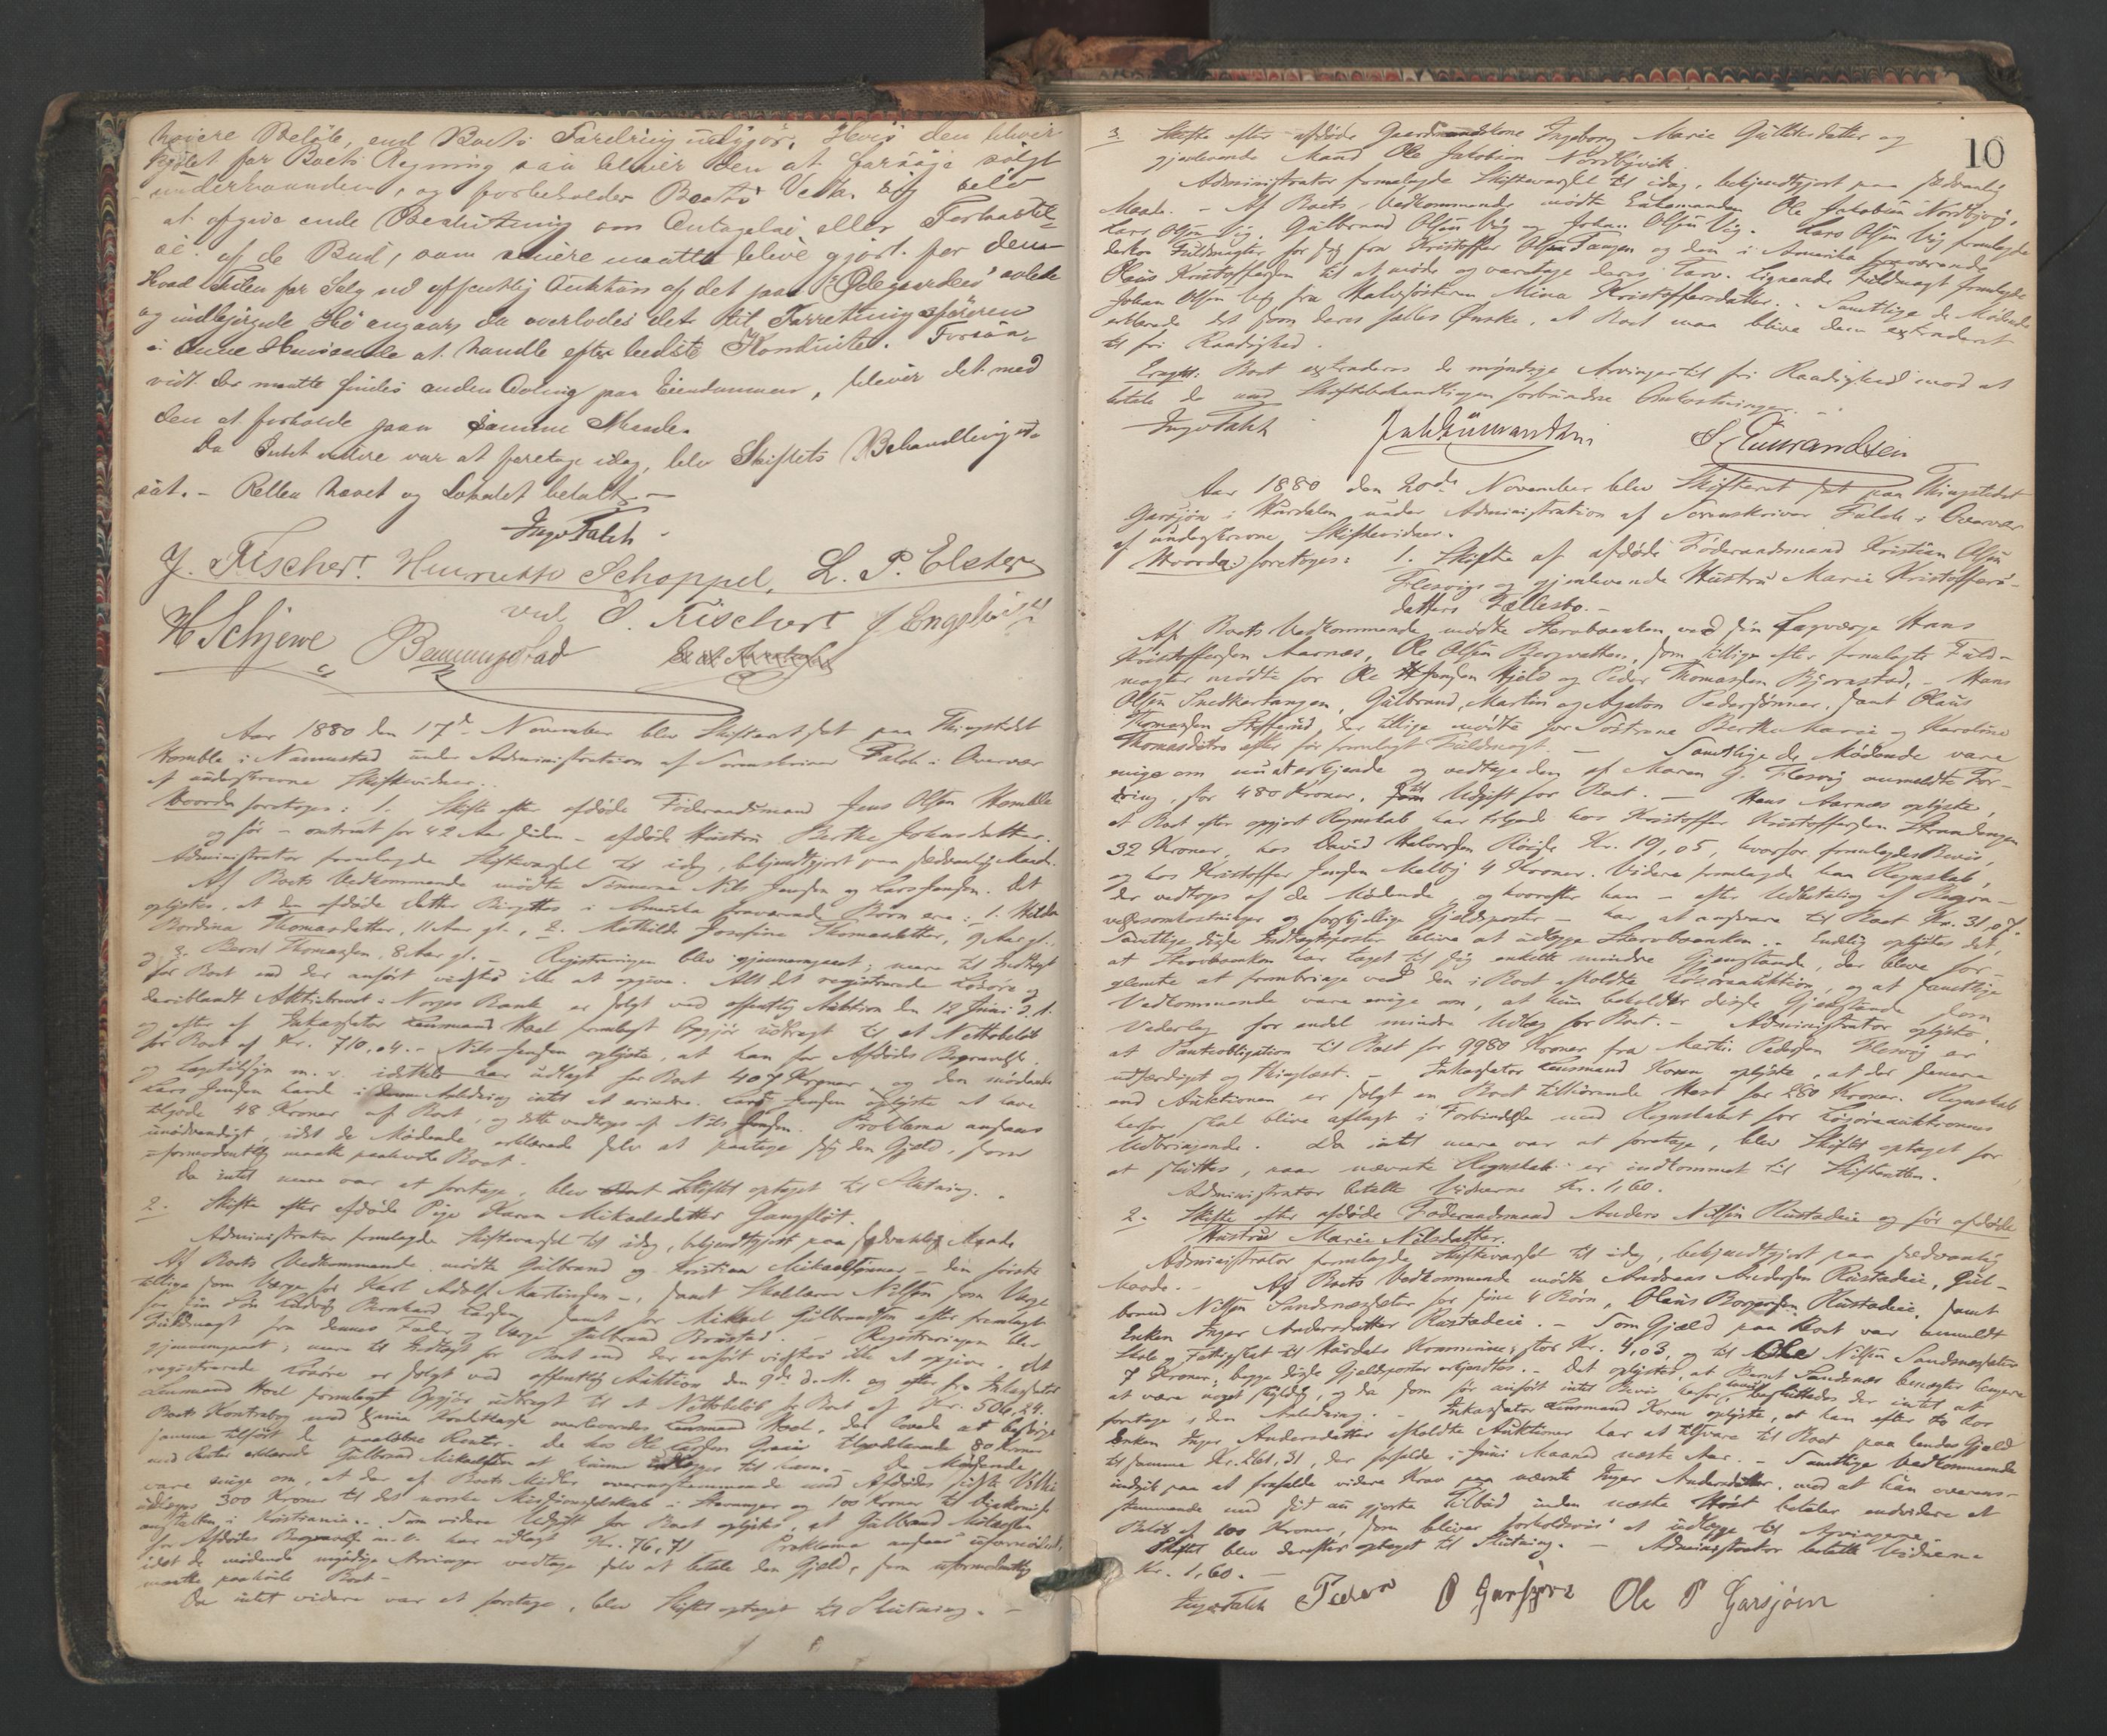 høiere Beløb, end Boets Fordring udgjør. Hvis den bliver
kjøbt for Boets Regning saa bliver den at forsøge solgt
underhaanden, og forbeholder Boets Vedk. sig selv
at afgive ende Beslutning om Antagelse eller Forkastel-
se af de Bud, som senere maatte blive gjort for den.
Hvad Tiden for Salg ved offentlig Auktion af det paa "Ødegaarden" avlede
og indbjergede Hø angaar, da overlodes det til Forretningsføreren
i denne Henseende at handle efter bedste Konduite. Forsaa-
vidt der maatte findes anden Avling paa Eiendommen, bliver det med
den at forholde paa samme Maade.
Da Intet videre var at foretage idag, blev Skiftets Behandling ud-
sat. - Retten hævet og Lokalet betalt. -
Inge Falch
J. Fischer. Henriette Schoppel, L. P. Elster
ved J. Fischer J Engelh
H Schjewe
Aar 1880 den 17de November blev Skifteret sat paa Thingstedet
Homble i Nannestad under Administration af Sorenskriver Falch i Overvær
af underskrevne Skiftevidner.
Hvorda foretoges: 1. Skifte efter afdøde Føderaadsmand Jens Olsen Homble
og før - omtrent for 42 Aar siden - afdøde Hustru Berthe Johnsdatter.
Administrator fremlagde Skiftevarsel til idag, bekjendtgjort paa sædvanlig Maade.
Af Boets Vedkommende mødte Sønnerne Nils Jensen og Lars Jensen. Det
oplystes, at den afdøde Datter Birgittes i Amerika fraværende Børn ere: 1. Hilda
Bordina Thomasdatter, 11 Aar gl., 2. Mathilde Josefine Thomasdatter, 9 Aar gl.,
og 3. Bernt Thomassen, 8 Aar gl. - Registreringen blev gjennemgaaet; mere til Indtægt
for Boet end der anført vidstes ikke at opgive. Alt det registrerede Løsøre og
deriblandt Aktiebrevet i Norges Bank er solgt ved offentlig Auktion den 12 Juni d. A.
og efter af Inkassator Lensmand Hoel fremlagt Opgjør udbragt til et Nettobeløb
for Boet af Kr. 710,04. - Nils Jensen oplyste, at han for Afdødes Begravelse
og Lægetilsyn m. v. har udlagt for Boet 407 Kroner, og den mødende
Lars Jensen havde i Anledning intet at erindre. Lars Jensen oplyste at have
tilgode 48 Kroner af Boet, og dette vedtoges af Nils Jensen. Proklama ansaaes
unødvendigt, idet de Mødende erklærede selv at paatage sig den Gjæld, som
uformodentlig maatte paahvile Boet.
Da intet mere var at foretage, blev Skiftet optaget til Slutning.
2. Skifte efter afdøde Pige Karen Mikaelsdatter Gangfløt.
Administrator fremlagde Skiftevarsel til idag, bekjendtgjort paa sædvanlig Maade
Af Boets Vedkommende mødte Gulbrand og Kristian Mikaelsønner - den første
tillige som Værge for Karl Adolf Martinsen -, samt Skolelærer Nilsen som Værge
for sin Søn Ludvig Bernhard Larsen samt for Mikkel Gulbrandsen efter fremlagt
Fuldmagt fra dennes Fader og Værge Gulbrand Brustad. - Registreringen blev
gjennemgaaet; mere til Indtægt for Boet end der anført vidstes ikke at opgive. Det
registrerede Løsøre er solgt ved offentlig Auktion den 9de d. M. og efter fra Inkassator
Lensmand Hoel fremlagt Opgjør udbragt til et Nettobeløb for Boet af Kr. 506,24.
Boets Kontrabog med Eina overleveredes Lensmand Hoel, der lovede at besørge
samme tilført de paaløbne Renter. De hos Ole Larsen Grai tilgodehavende 80 Kroner
med Renter erklærede Gulbrand Mikaelsen at kunne udlægges til ham. - De Mødende
vare enige om, at der af Boets Midler overensstemmende med Afdødes sidste Villie
udlægges 300 Kroner til det norske Missionsselskab i Stavanger og 100 Kroner til Diakonisse
anstalten i Kristiania. - Som videre Udgift for Boet oplystes, at Gulbrand Mikaelsen
for Afdødes Begravelse m. v. har udlagt Kr. 76,71. Proklama ansaaes ufornødent,
idet de mødende myndige Arvinger vedtage selv at betale den Gjæld, som uformodentlig
maatte paahvile Boet.
Da intet videre var at foretage, blev Skiftet optaget til Slutning. -
10
3. Skifte efter afdøde Gaardmandskone Ingeborg Marie Gulbrandsdatter og
gjenlevende Mand Ole Jakobsen Nordbyvik
Administrator fremlagde Skiftevarsel til idag, bekjendtgjort paa sædvanlig
Maade. - Af Boets Vedkommende mødte Enkemanden Ole Jakobsen Nordby,
Lars Olsen Vig, Gulbrand Olsen Vig og Johan Olsen Vig. Lars Olsen Vig fremlagde
derhos Fuldmagter for sig fra Kristoffer Olsen Tangen og den i Amerika fraværende
Olaus Kristoffersen til at møde og varetage deres Tarv. Lignende Fuldmagt fremlagde
Johan Olsen Vig fra Halvsøsteren Mina Kristoffersdatter. - Samtlige de Mødende
erklærede det som deres fælles Ønske, at Boet maa blive dem extraderet
til fri Raadighed.
Eragtet: Boet extraderes de myndige Arvinger til fri Raadighed imod at
betale de med Skiftebehandlingen forbundne Omkostninger. -
Inge Falch
Aar 1880 den 20de November blev Skifteret sat paa Thingstedet
Garsjøn i Hurdalen under Administration af Sorenskriver Falch i Overvær
af underskrevne Skiftevidner.
Hvorda foretoges: 1. Skifte af afdøde Føderaadsmand Kristian Olsen
Flesvigs og gjenlevende Hustru Marie Kristoffers-
datters Fællesbo. -
Af Boets Vedkommende mødte Stervboenken ved sin Lagværge Hans
Kristoffersen Aarnæs, Ole Olsen Bergvatten, som tillige efter fremlagte Fuld-
magter mødte for Ole Hansen Hjeld og Peder Thomassen Bjørnstad, - Hans
Olsen Snedkertangen, Gulbrand, Martin og Agaton Pedersønner, samt Olaus
Thomassen Steffensrud, der tillige mødte for Søstrene Berthe Marie og Karoline
Thomasdøtre efter før fremlagt Fuldmagt. - Samtlige de Mødende vare
enige om nu at erkjende og vedtage den af Maren G. Flesvig anmeldte For-
dring, stor 480 Kroner, til Udgift for Boet. - Hans Aarnæs oplyste,
at Boet efter opgjort Regnskab har tilgode hos Kristoffer Kristoffersen Strandengen
32 Kroner, hos David Halvorsen Røise Kr. 19,05, hvorfor fremlagdes Bevis,
og hos Kristoffer Jensen Melby 4 Kroner. Videre fremlagde han Regnskab,
der vedtoges af de Mødende og hvorefter han - efter Udbetaling af Begra-
velsesomkostninger og forskjellige Gjeldsposter - har at ansvare til Boet Kr. 31,07.
Samtlige disse Indtægtsposter blive at udlægge Stervboenken. - Endelig oplystes det,
at Stervboenken har taget til sig enkelte mindre Gjenstande, der bleve for-
glemte at frembringe ved den i Boet afholdte Løsøreauktion, og at samtlige
Vedkommende vare enige om, at hun beholder disse Gjenstande som
Vederlag for endel mindre Udlæg for Boet. - Administrator oplyste,
at Panteobligation til Boet for 9980 Kroner fra Martin Pedersen Flesvig er
udfærdiget og thinglæst. - Inkassator Lensmand Koren oplyste, at der senere
end Auktionen er solgt en Boet tilhørende Hest for 280 Kroner. Regnskab
herfor skal blive aflagt i Forbindelse med Regnskabet for Løsøreauktionens
Udbringende. Da intet mere var at foretage, blev Skiftet optaget for
at sluttes, naar nævnte Regnskab er indkommet til Skifteretten.
Administrator betalte Vidnerne Kr. 1,60.
2. Skifte efter afdøde Føderaadsmand Anders Nilsen Rustadeie og før afdøde
Hustru Marie Nilsdatter.
Administrator fremlagde Skiftevarsel til idag, bekjendtgjort paa sædvanlig
Maade. - Af Boets Vedkommende mødte Andreas Andersen Rustadeie, Gul-
brand Nilsen Sandsnæssæter for sine 4 Børn, Olaus Borgersen Rustadeie, samt
Enken Inger Andersdatter Rustadeie. - Som Gjæld paa Boet var anmeldt
Skole og Fattigskat til Hurdals Kommune, stor Kr. 4,03, og til Ole Nilsen Sandsnæssæter
7 Kroner; begge disse Gjældsposter erkjendtes. - Det oplystes, at Bernt Sandsnæs benægter længere
at være noget skyldig, og da som før anført intet Bevis haves, besluttedes der intet at
foretage i den Anledning. - Inkassator Lensmand Koren oplyste, at han efter to hos
Enken Inger Andersdatter afholdte Auktioner har at tilsvare til Boet paa hendes Gjæld
til samme Kr. 261,31, der forfalde i Juni Maaned næste Aar. - Samtlige Vedkommende
indgik paa at frafalde videre Krav paa nævnte Inger Andersdatter, mod at hun overens-
stemmende med sit nu gjorte Tilbud inden næste Høst betaler endvidere et
Beløb af 100 Kroner, som bliver forholdsvis at udlægge til Arvingerne.
Skiftet blev derefter optaget til Slutning. - Administrator betalte Vidnerne
Kr. 1,60. -
Inge Falch Peder O Garsjøen Ole P Garsjøen